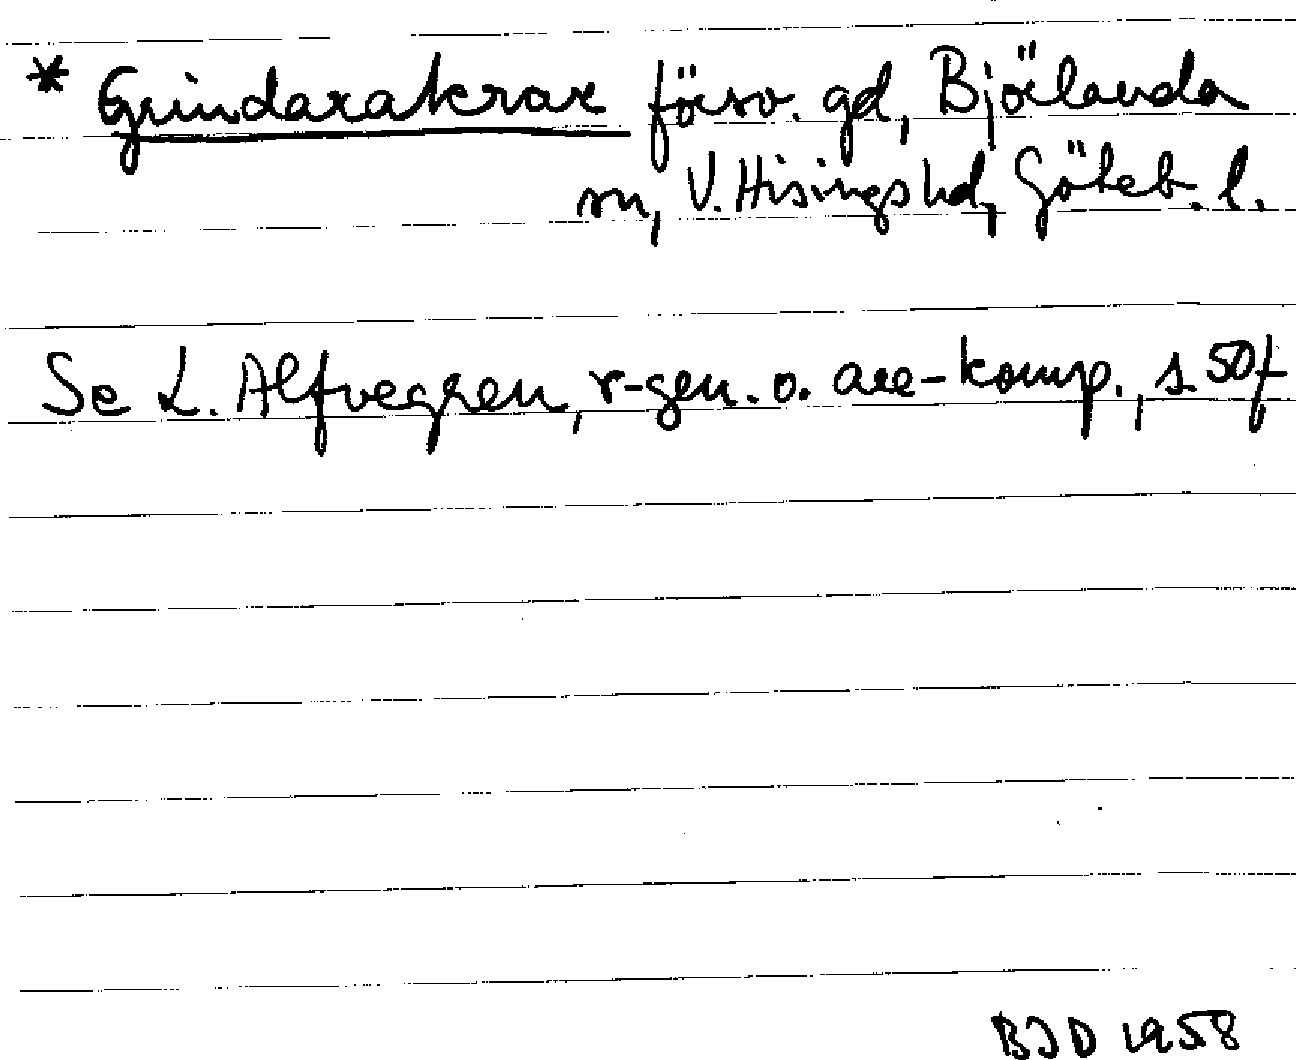 * Grindarakrar försv. gd, Björlanda
sn, V. Hisings hd, Göteb. l.
Se L. Alfvegren, r-gen. o. are-komp., s 50f
BJD 1958